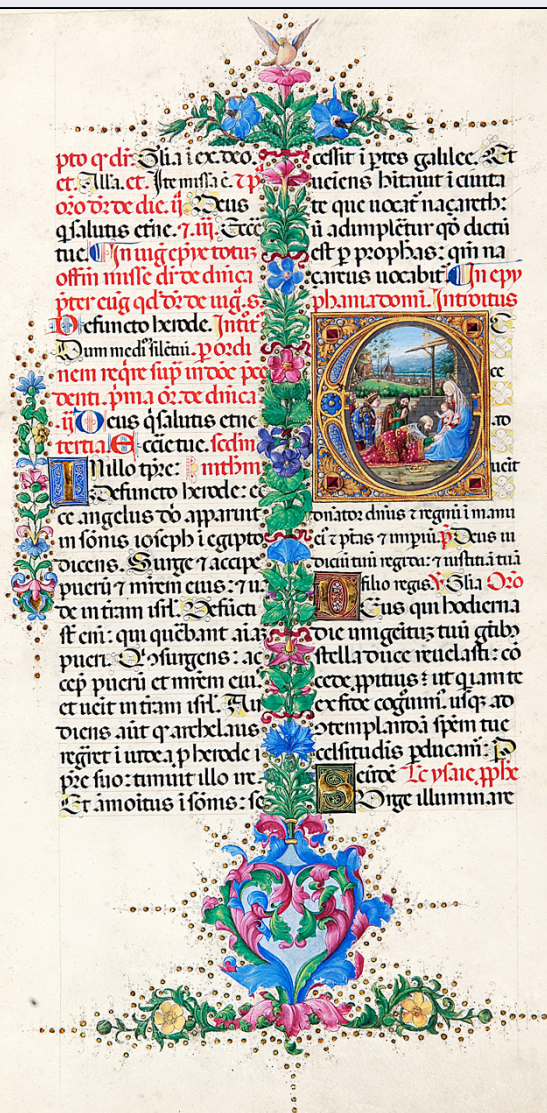 pto qr dr. Glia i ex. deo.
et. Alla. et. Ite missa ē. ⁊ p
oro dr de die. ij Deus
q salutis etne. ⁊. iij. Ecce
tue. In uig epye totuz
offm misse dr de dnica
pter eug qd dr de uig. s.
Defuncto herode. Introit
Dum mediū silētiū. p ordi
nem reqre sup in doc pce
denti. pma or. de dnica
ij Deus q salutis etne
tertia. Ecciē tue. scdm
In illo tpre: mthm
Defuncto herode: ec
ce angelus dn apparuit
in sōnis ioseph i egipto
dicens. Surge ⁊ accipe
puerū ⁊ mrem eius: ⁊ ua
de in tram isrl. Defūcti
st eni: qui querebant aiaz
pueri. Qui cōsurgens: ac
cep puerū et mrem eius
et ueit in tram isrl. Au
diens aut q archelaus
regret i iudea p herode
pre suo: timuit illo ire
Et amoitus i sōnis: se
cessit i ptes galilee. Et
ueniens hitauit i ciuita
te que uocat nazareth:
ut adimpletur qd dictū
est p prophas: qm na
zareus uocabit. In epy
phania domi. Introitus
E
cce
ad
uenit
dnator dnius ⁊ regnū i manu
ei ⁊ ptas ⁊ impiū. p Deus iu
diciū tuū regi da: ⁊ iustitiā tuā
filio regis. V Glia Oro
Deus qui hodierna
die unigeitus tuū gtibus
stella duce reuelasti: cō
cede ppitius: ut q iam te
ex fide cognuim. usq ad
cōtemplandā spēm tue
celsitudis pducam: P
eūde Lc ysaie pphe
Surge illuminare